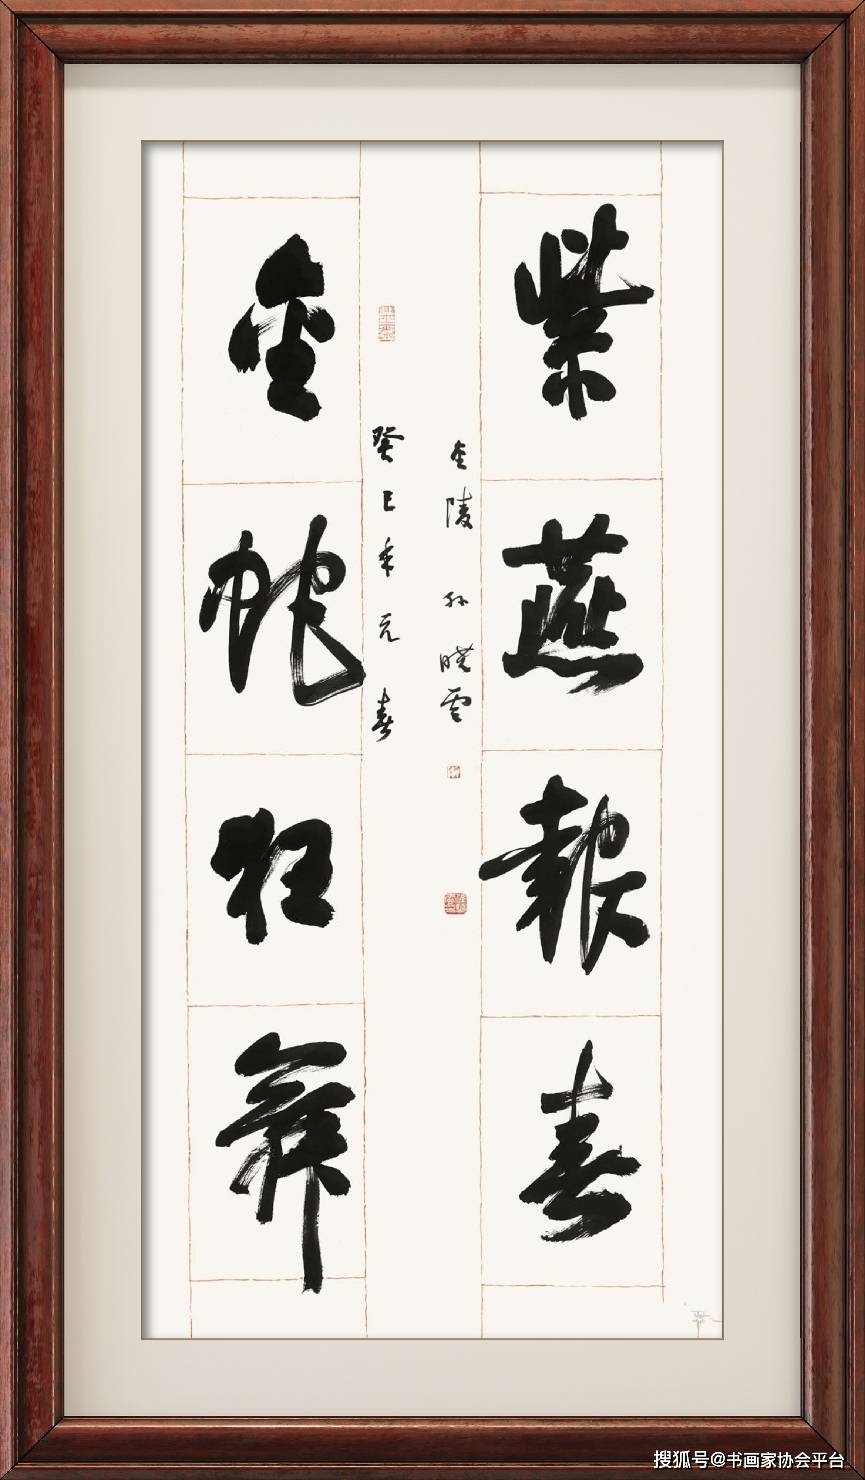 紫燕報春
金蛇狂舞
癸巳年元春
金陵孙晓雲
搜狐号@书画家协会平台